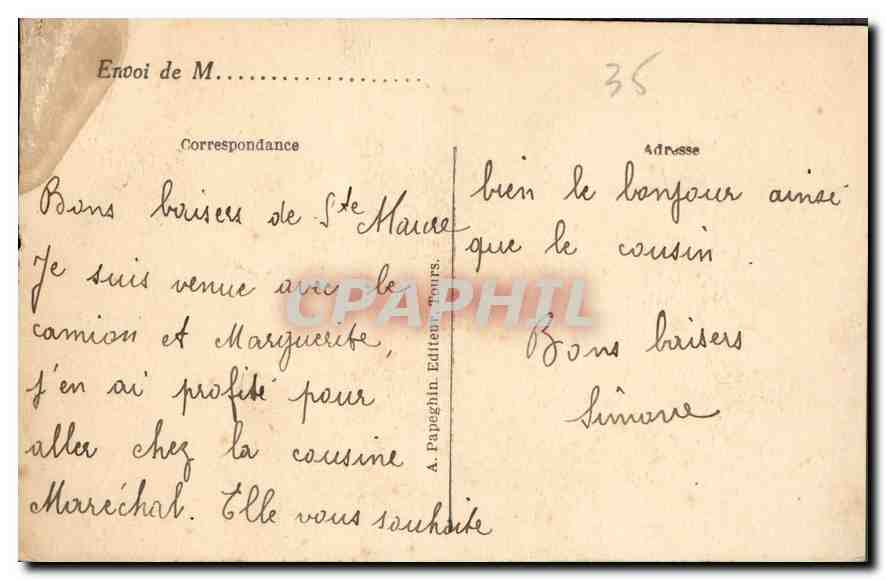 Envoi de M....................
35
Correspondance
Bons baisers de Ste Maure
Je suis venue avec le
camion et Marguerite,
j'en ai profité pour
aller chez la cousine
Maréchal. Elle vous souhaite
A. Papeghin. Editeur, Tours.
Adresse
bien le bonjour ainsi
que le cousin.
Bons baisers
Simone
CPAPHIL